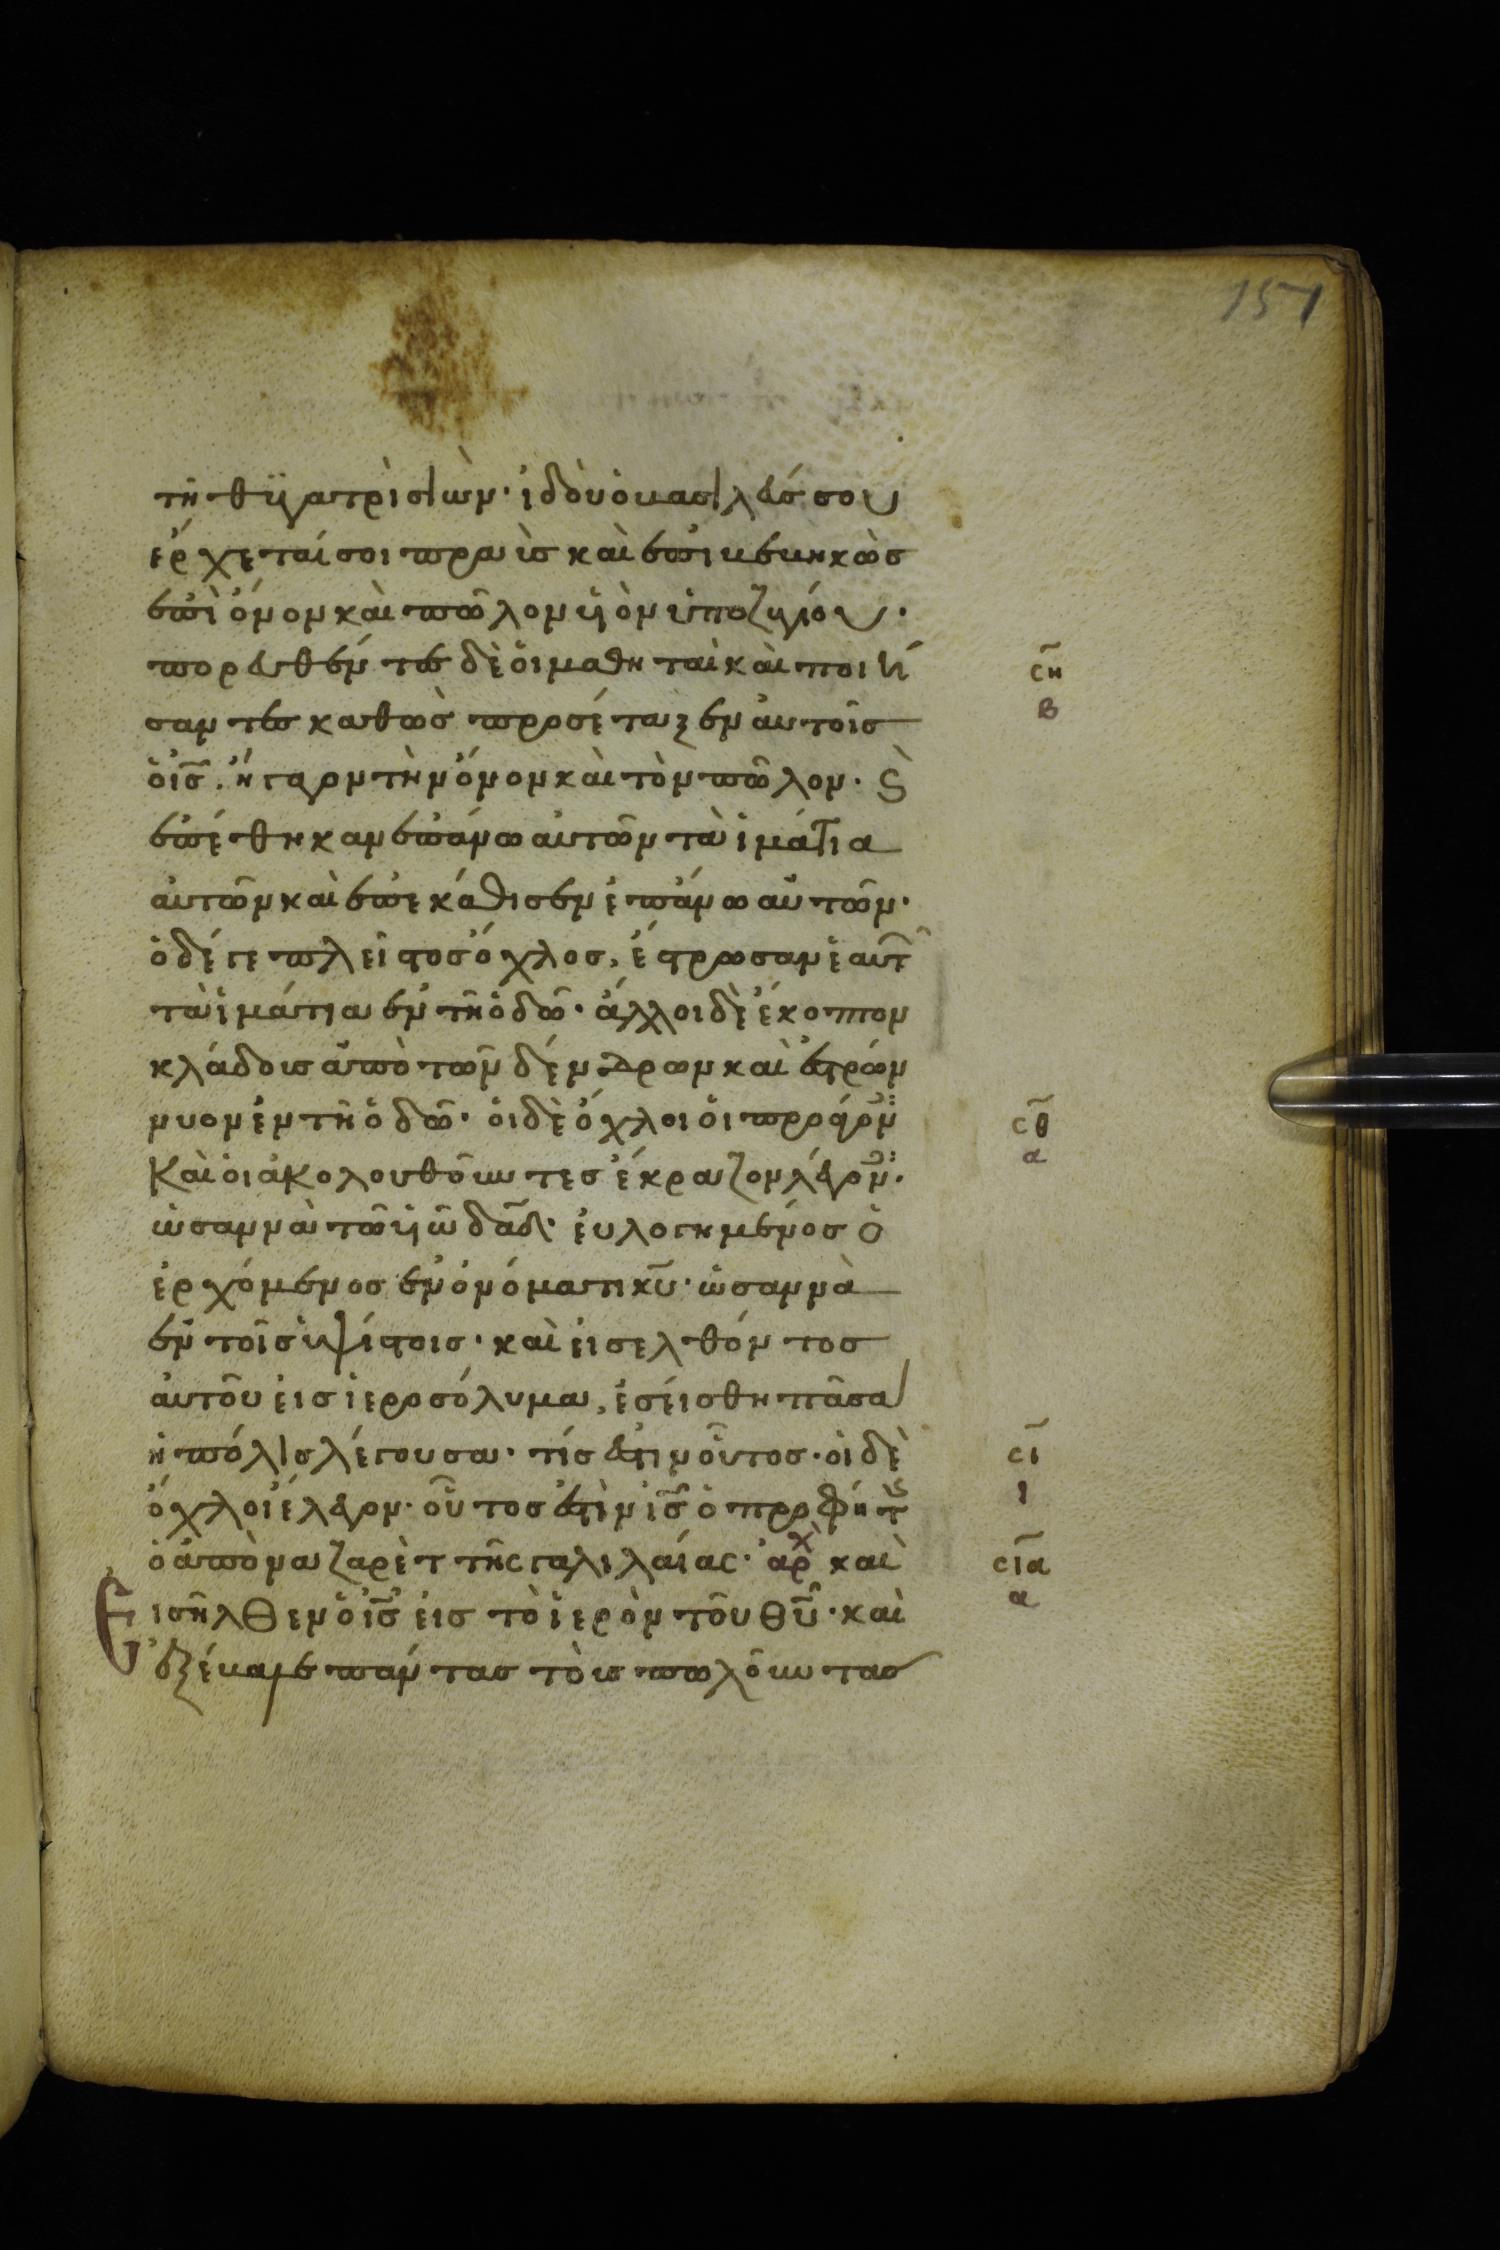 151
τῆ θϋγατρὶ σιὼν· ἰδοὺ ὁ βασιλεύς σου
ἔρχεταί σοι πραῢς καὶ ἐπιβεβηκὼς
ἐπὶ ὄνον καὶ πῶλον ὑὸν ὑποζυγίου·
πορευθέντες δὲ ὁι μαθηταὶ καὶ ποιή
σαντες καθὼς προσέταξεν ἀυτοῖς
ὁ ι̅ς̅. ἤγαγον τὴν ὄνον καὶ τὸν πῶλον· ϗ
ἐπέθηκαν ἐπάνω αὐτῶν τὰ ἱμάτια
ἀυτῶν καὶ ἐπεκάθισεν ἐπάνω αὐτῶν·
ὁ δέ γε πλεῖστος ὄχλος, ἔστρωσαν ἑαυτ
τὰ ἱμάτια ἐν τῆ ὁδῶ· ἄλλοι δὲ ἔκοπτον
κλάδους ἀπὸ τῶν δένδρων καὶ ἐστρών
νυον ἐν τῆ ὁδῶ· ὁι δὲ ὄχλοι ὁι προάγον
σ̅η
β
Καὶ ὁι ἀκολουθοῦντες ἔκραζον λέγον·
σ̅θ
α
ὡσαννὰ τῶ ὑῶ δα̅δ· ἐυλογημένος ὁ
ἐρχόμενος ἐν ὀνόματι κ̅υ̅· ὡσαννὰ
ἐν τοῖς ὑψίστοις· καὶ ἐισελθόντος
ἀυτοῦ ἐις ἱεροσόλυμα, ἐσείσθη πᾶσα
ἡ πόλις λέγουσα· τίς ἐστιν οὗτος· ὁι δὲ
σ̅ι
ι
ὄχλοι ἔλεγον· οὗτός ἐστιν ι̅ς̅ ὁ προφήτ
ὁ ἀπὸ ναζαρὲτ τῆς γαλιλαίας· ἀρχ καὶ
σ̅ι̅α
α
Εισῆλθεν ὁ ι̅ς̅ ἐις τὸ ἱερὸν τοῦ θ̅υ̅· καὶ
ἐξέβαλε πάντας τοὺς πωλοῦντας